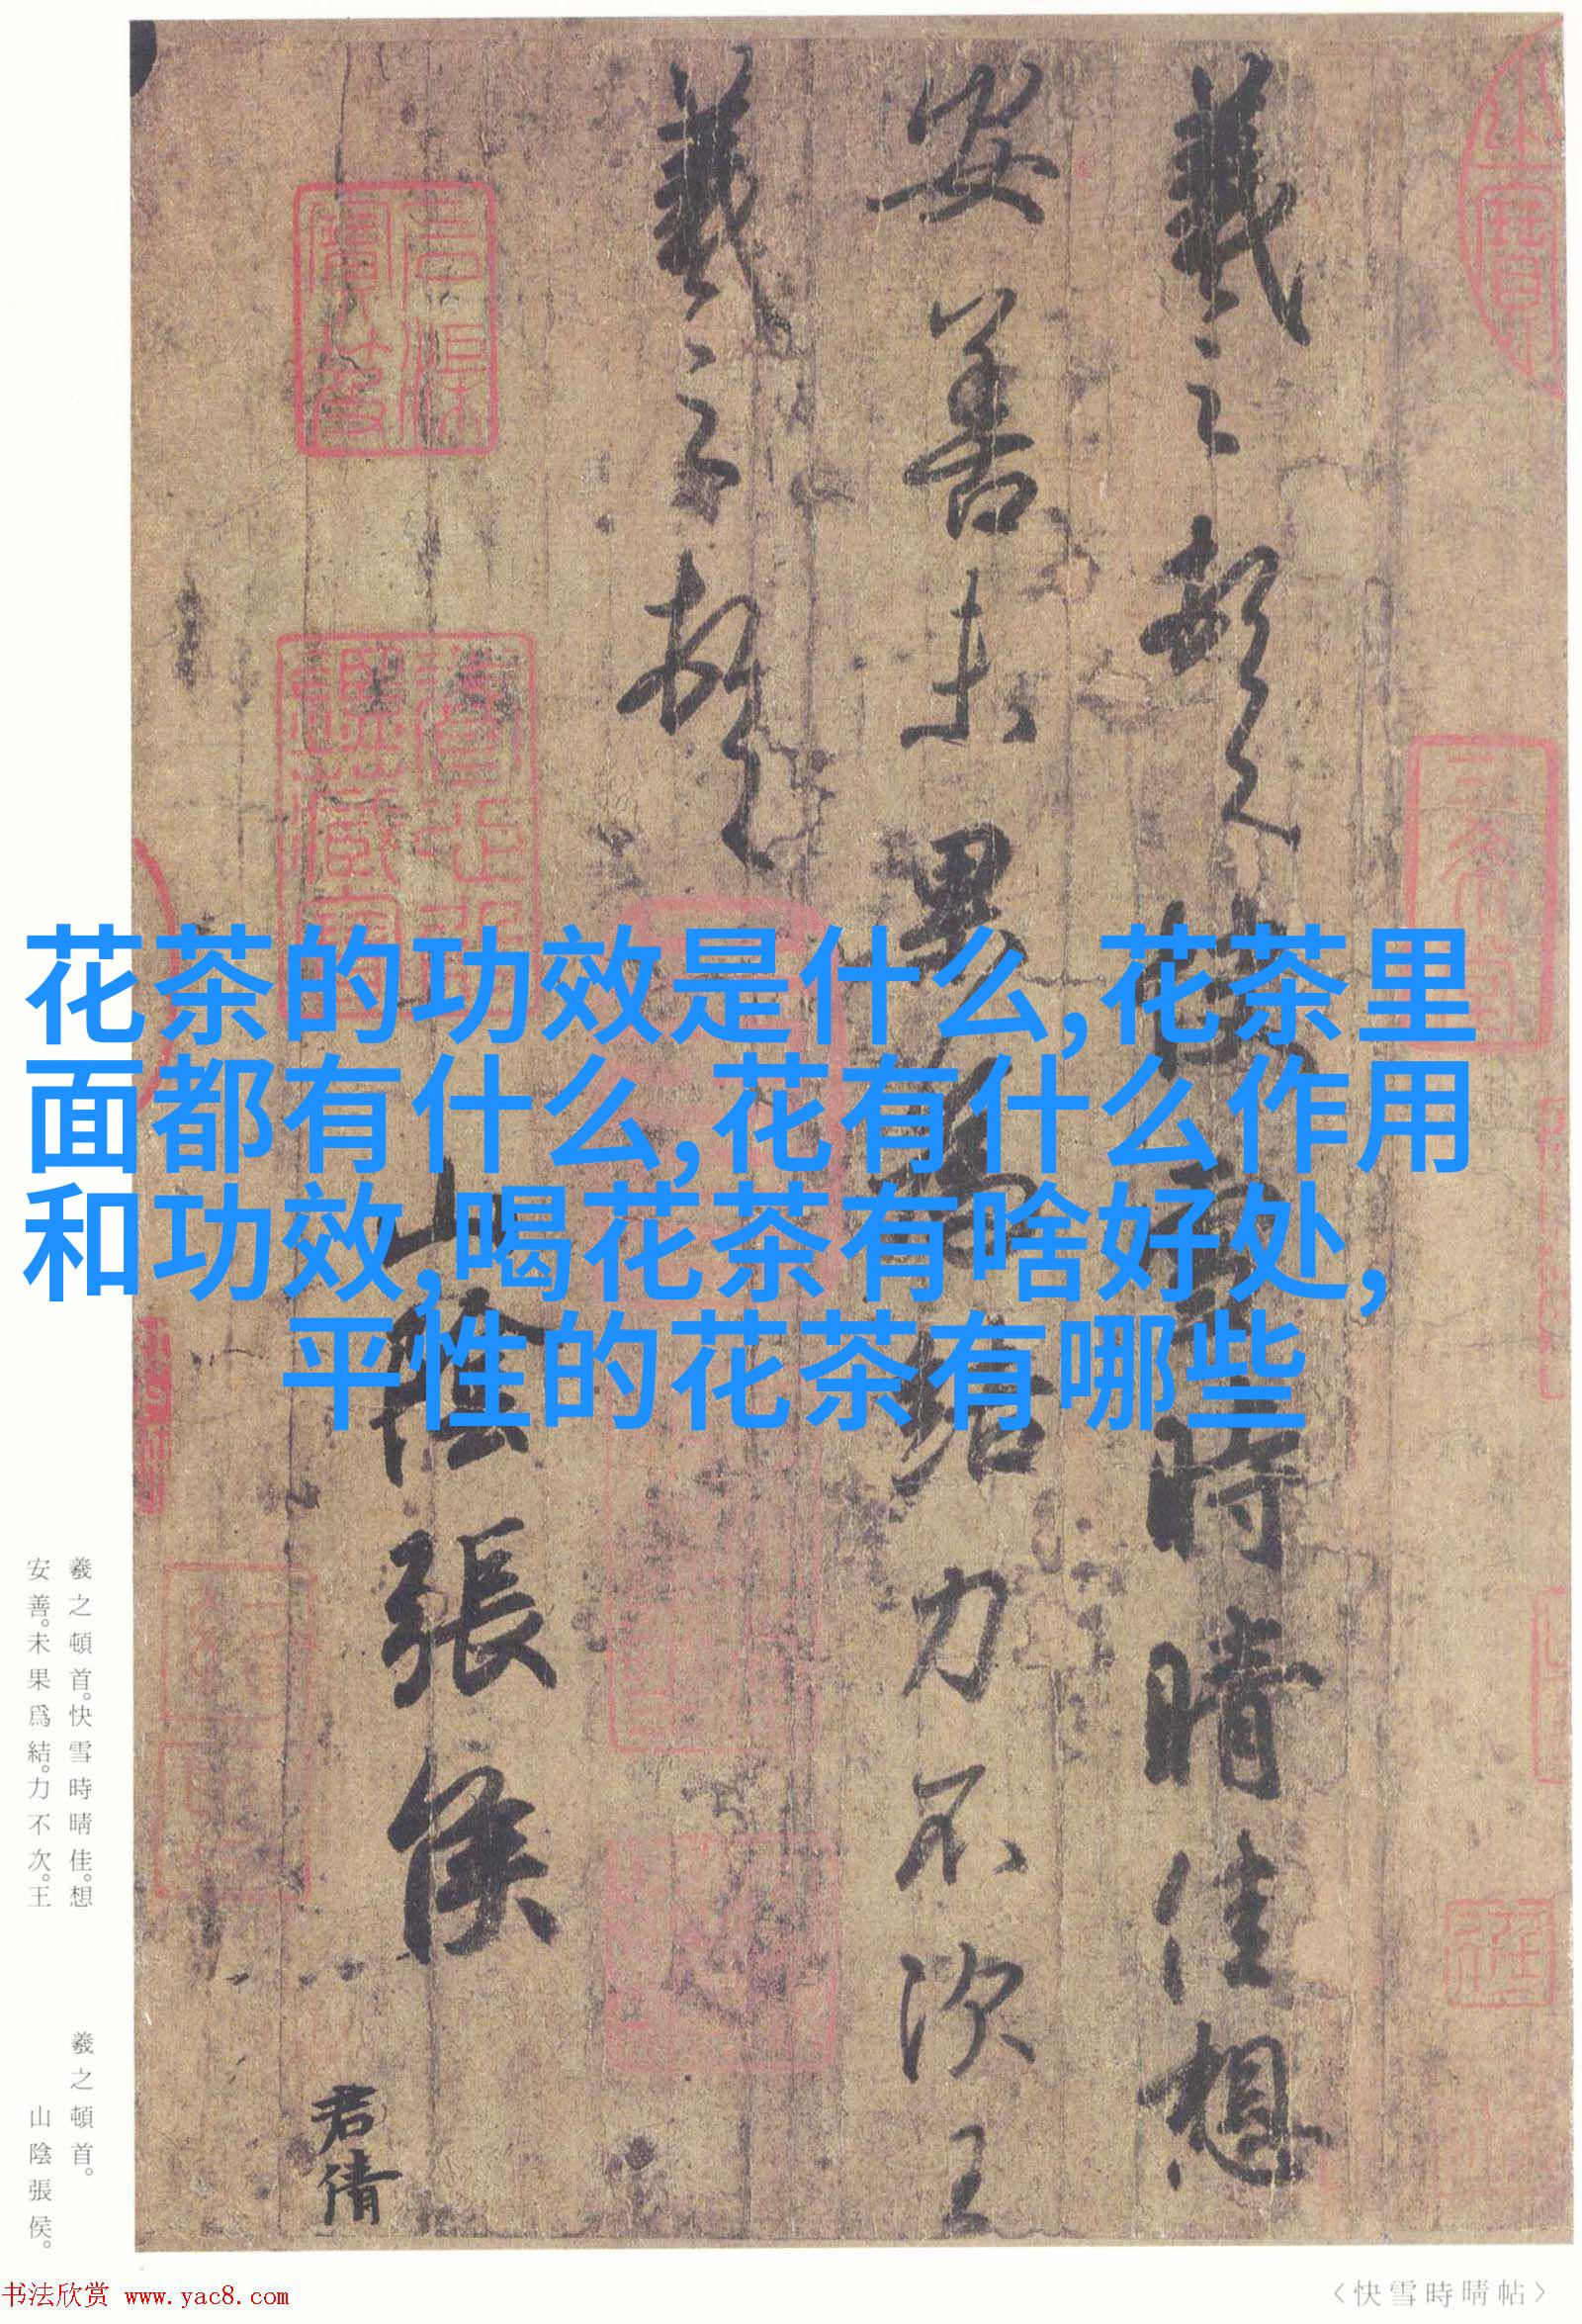 花茶的功效是什么,花茶里
面都有什么,花有什么作用
和功效,喝花茶有啥好处,
平性的花茶有哪些
羲之頓首快雪時晴佳想
安善未果為結力不次王
羲之頓首
山陰張侯
君倩
羲之頓首。快雪時晴佳。想
安善。未果爲結。力不次。王
羲之頓首。
山陰張侯。
书法欣赏 www.yac8.com
〈快雪時晴帖〉